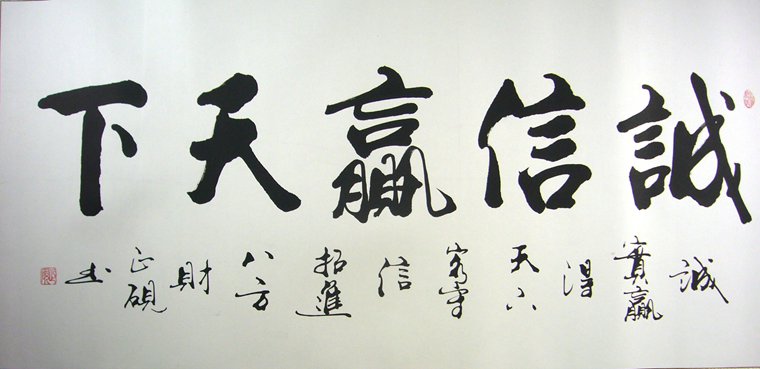 誠信贏天下
誠實贏得天下客守信招進八方財正硯书